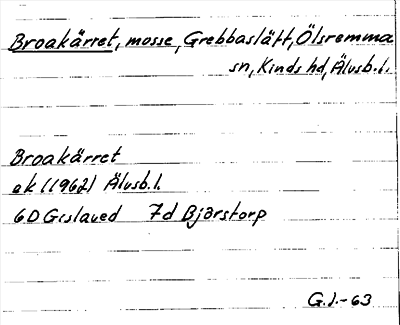 Broakärret, mosse, Grebbaslätt, Ölsremma
sn, Kinds hd, Älvsb.l.
Broakärret
ek (1962) Älvsb.l.
6D Gislaved 7d Bjärstorp
G.J.-63